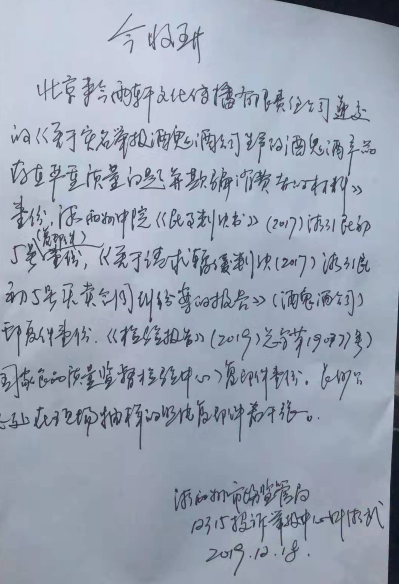 今收到
北京来今雨轩文化传播有限责任公司递交
的《关于实名举报酒鬼酒公司生产的酒鬼酒产品
存在严重质量问题并欺骗消费者的材料》
壹份,湘西州中院《民事判决书》(2017)湘31民初
5号(复印件)壹份,《关于请求 判决(2017)湘31民
初5号买卖合同纠纷案的报告》(酒鬼酒公司)
复印件壹份.《检验报告》(2019) 字第19087号)
国家食品质量监督检验中心)复印件壹份。长沙公
证处在现场抽样的照片复印件若干张。
湘西州市场监管局
12315投诉举报中心 
2019.12.18.